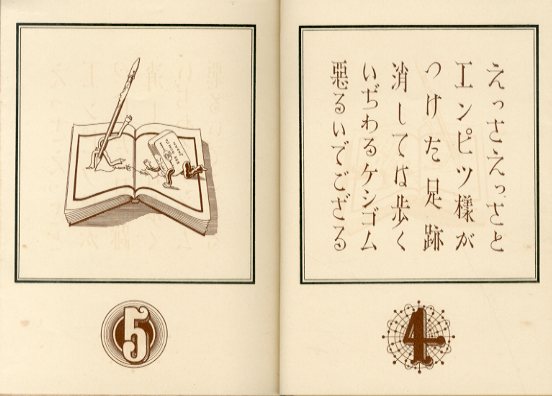 えっさえっさと
エンピツ様が
つけた足跡
消しては歩く
いぢわるケシゴム
悪るいでござる
4
5